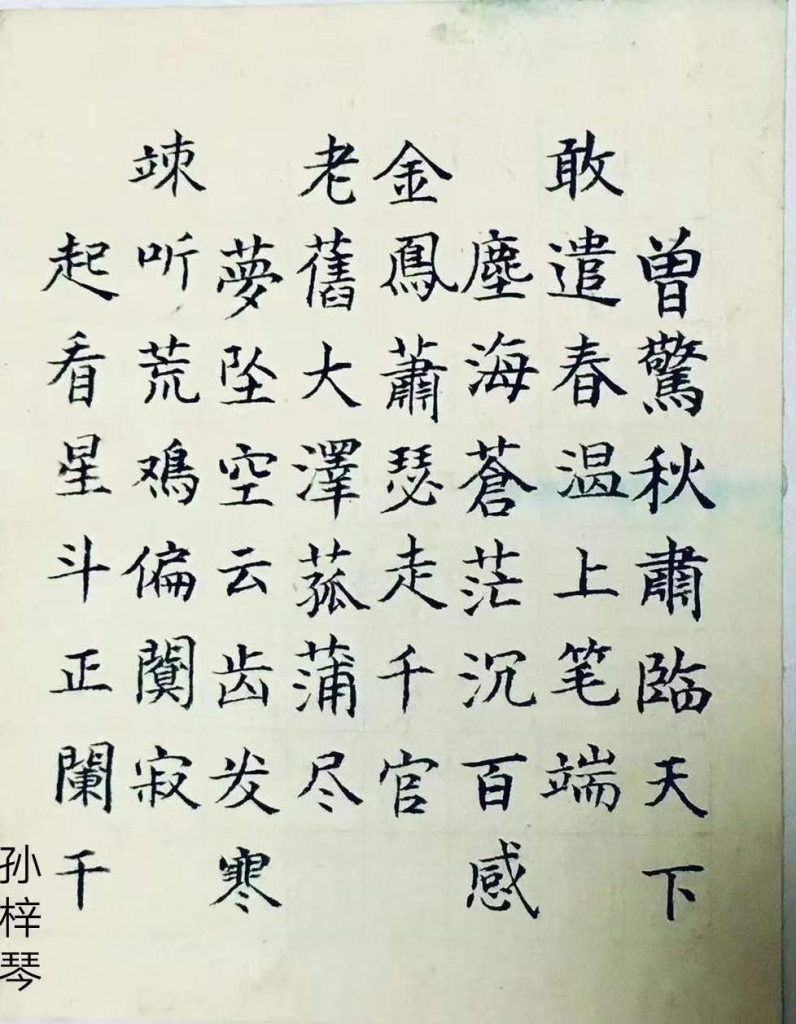 曽驚秋肅臨天下
敢遣春温上笔端
塵海蒼茫沉百感
金鳳蕭瑟走千官
老舊大澤菰蒲尽
夢坠空云齿发寒
竦听荒鸡偏闃寂
起看星斗正闌千
孙梓琴